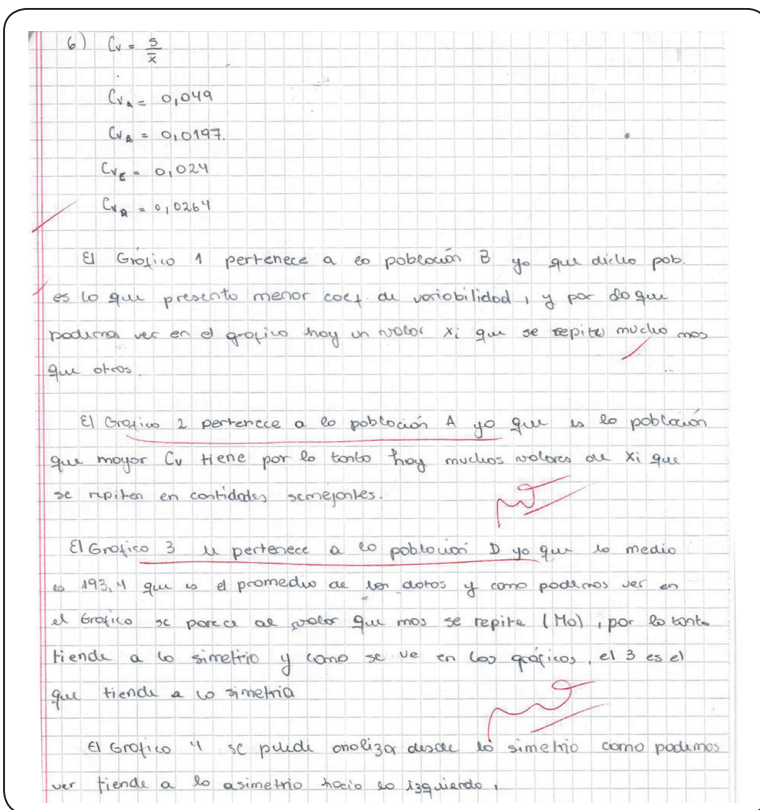 6) Cv = s/x̄
CvA = 0,049
CvB = 0,0197.
CvC = 0,024
CvD = 0,0264
El Gráfico 1 pertenece a la población B ya que dicha pob.
es la que presenta menor coef. de variabilidad, y por lo que
podemos ver en el gráfico hay un valor xi que se repite mucho mas
que otros.
El Grafico 2 pertenece a la población A ya que es la población
que mayor Cv tiene por lo tanto hay muchos valores de xi que
se repiten en cantidades semejantes.
El Grafico 3 pertenece a la población D ya que la media
es 193,4 que es el promedio de los datos y como podemos ver en
el Grafico se parece al valor que mas se repite (Mo), por lo tanto
tiende a la simetria y como se ve en los gráficos, el 3 es el
que tiende a la simetria
El Grafico 4 se puede analizar desde la simetria como podemos
ver tiende a la asimetria hacia la izquierda.